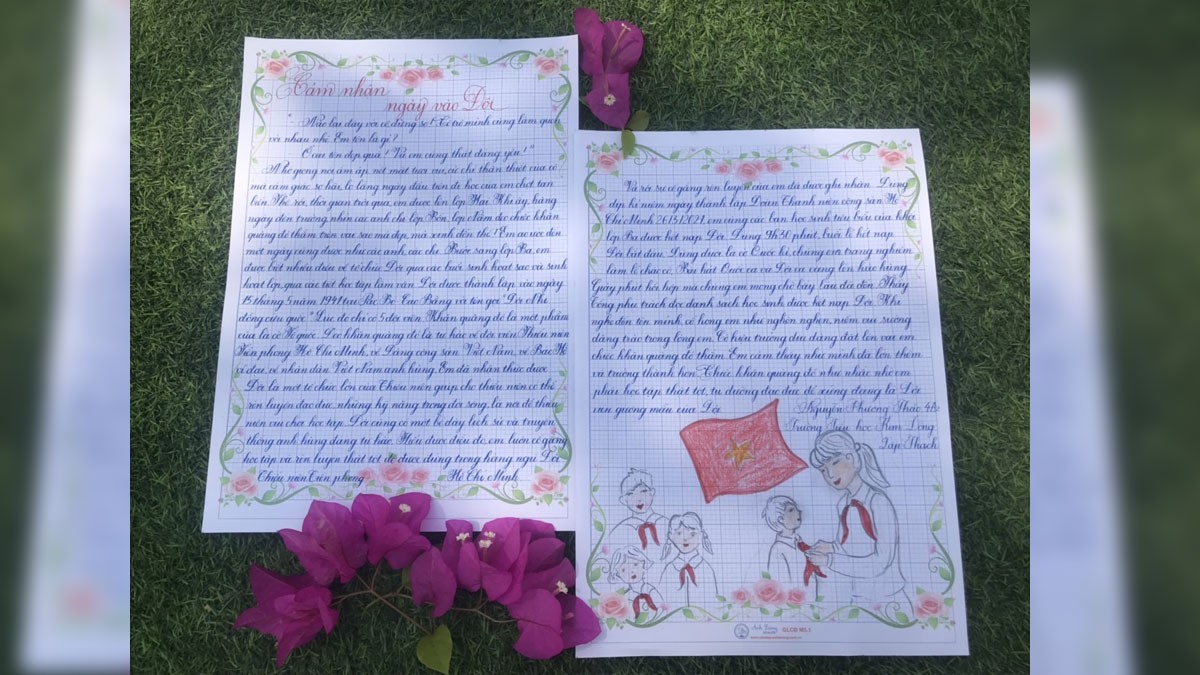 Cảm nhận
ngày vào Đội
" Nào lại đây với cô đừng sợ! Cô trò mình cùng làm quen
với nhau nhé. Em tên là gì?
Ồ cái tên đẹp quá! Và em cũng thật đáng yêu!"
Nghe giọng nói ấm áp, nét mặt tươi vui, cử chỉ thân thiết của cô
mà cảm giác sợ hãi, lo lắng ngày đầu tiên đi học của em chợt tan
biến. Thế rồi, thời gian trôi qua, em được lên lớp Hai. Khi ấy, hàng
ngày đến trường, nhìn các anh chị lớp Bốn, lớp Năm đeo chiếc khăn
quàng đỏ thắm trên vai sao mà đẹp, mà xinh đến thế! Em ao ước đến
một ngày cũng được như các anh, các chị. Bước sang lớp Ba, em
được biết nhiều điều về tổ chức Đội qua các buổi sinh hoạt sao và sinh
hoạt lớp, qua các tiết học tập làm văn. Đội được thành lập vào ngày
15 tháng 5 năm 1941 tại Pác Bó Cao Bằng và tên gọi "Đội Nhi
đồng cứu quốc". Lúc đó chỉ có 5 đội viên. Khăn quàng đỏ là một phần
của lá cờ Tổ quốc. Đeo khăn quàng đỏ là tự hào về đội viên Thiếu niên
Tiền phong Hồ Chí Minh, về Đảng cộng sản Việt Nam, về Bác Hồ
vĩ đại, về nhân dân Việt Nam anh hùng. Em đã nhận thức được
Đội là một tổ chức lớn của Thiếu niên giúp cho thiếu niên có thể
rèn luyện đạo đức, những kỹ năng trong đời sống, là nơi để thiếu
niên vui chơi học tập. Đội cũng có một bề dày lịch sử và truyền
thống anh hùng đáng tự hào. Hiểu được điều đó, em luôn cố gắng
học tập và rèn luyện thật tốt để được đứng trong hàng ngũ Đội
Thiếu niên Tiền phong Hồ Chí Minh.
Và rồi sự cố gắng rèn luyện của em đã được ghi nhận. Đúng
dịp kỉ niệm ngày thành lập Đoàn Thanh niên cộng sản Hồ
Chí Minh 26/3/2021, em cùng các bạn học sinh tiêu biểu của khối
lớp Ba được kết nạp Đội. Đúng 9h30 phút, buổi lễ kết nạp
Đội bắt đầu. Đứng dưới lá cờ Quốc kì, chúng em trang nghiêm
làm lễ chào cờ. Bài hát Quốc ca và Đội ca vang lên hào hùng.
Giây phút hồi hộp mà chúng em mong chờ bấy lâu đã đến. Thầy
Tổng phụ trách đọc danh sách học sinh được kết nạp Đội. Khi
nghe đến tên mình, cổ họng em như nghèn nghẹn, niềm vui sướng
dâng trào trong lòng em. Cô hiệu trưởng dịu dàng đặt lên vai em
chiếc khăn quàng đỏ thắm. Em cảm thấy như mình đã lớn thêm
và trưởng thành hơn. Chiếc khăn quàng đỏ như nhắc nhở em
phải học tập thật tốt, tu dưỡng đạo đức để xứng đáng là Đội
viên gương mẫu của Đội.
Nguyễn Phương Thảo 4A
Trường Tiểu học Kim Long
Lập Thạch
QLCD NO.1